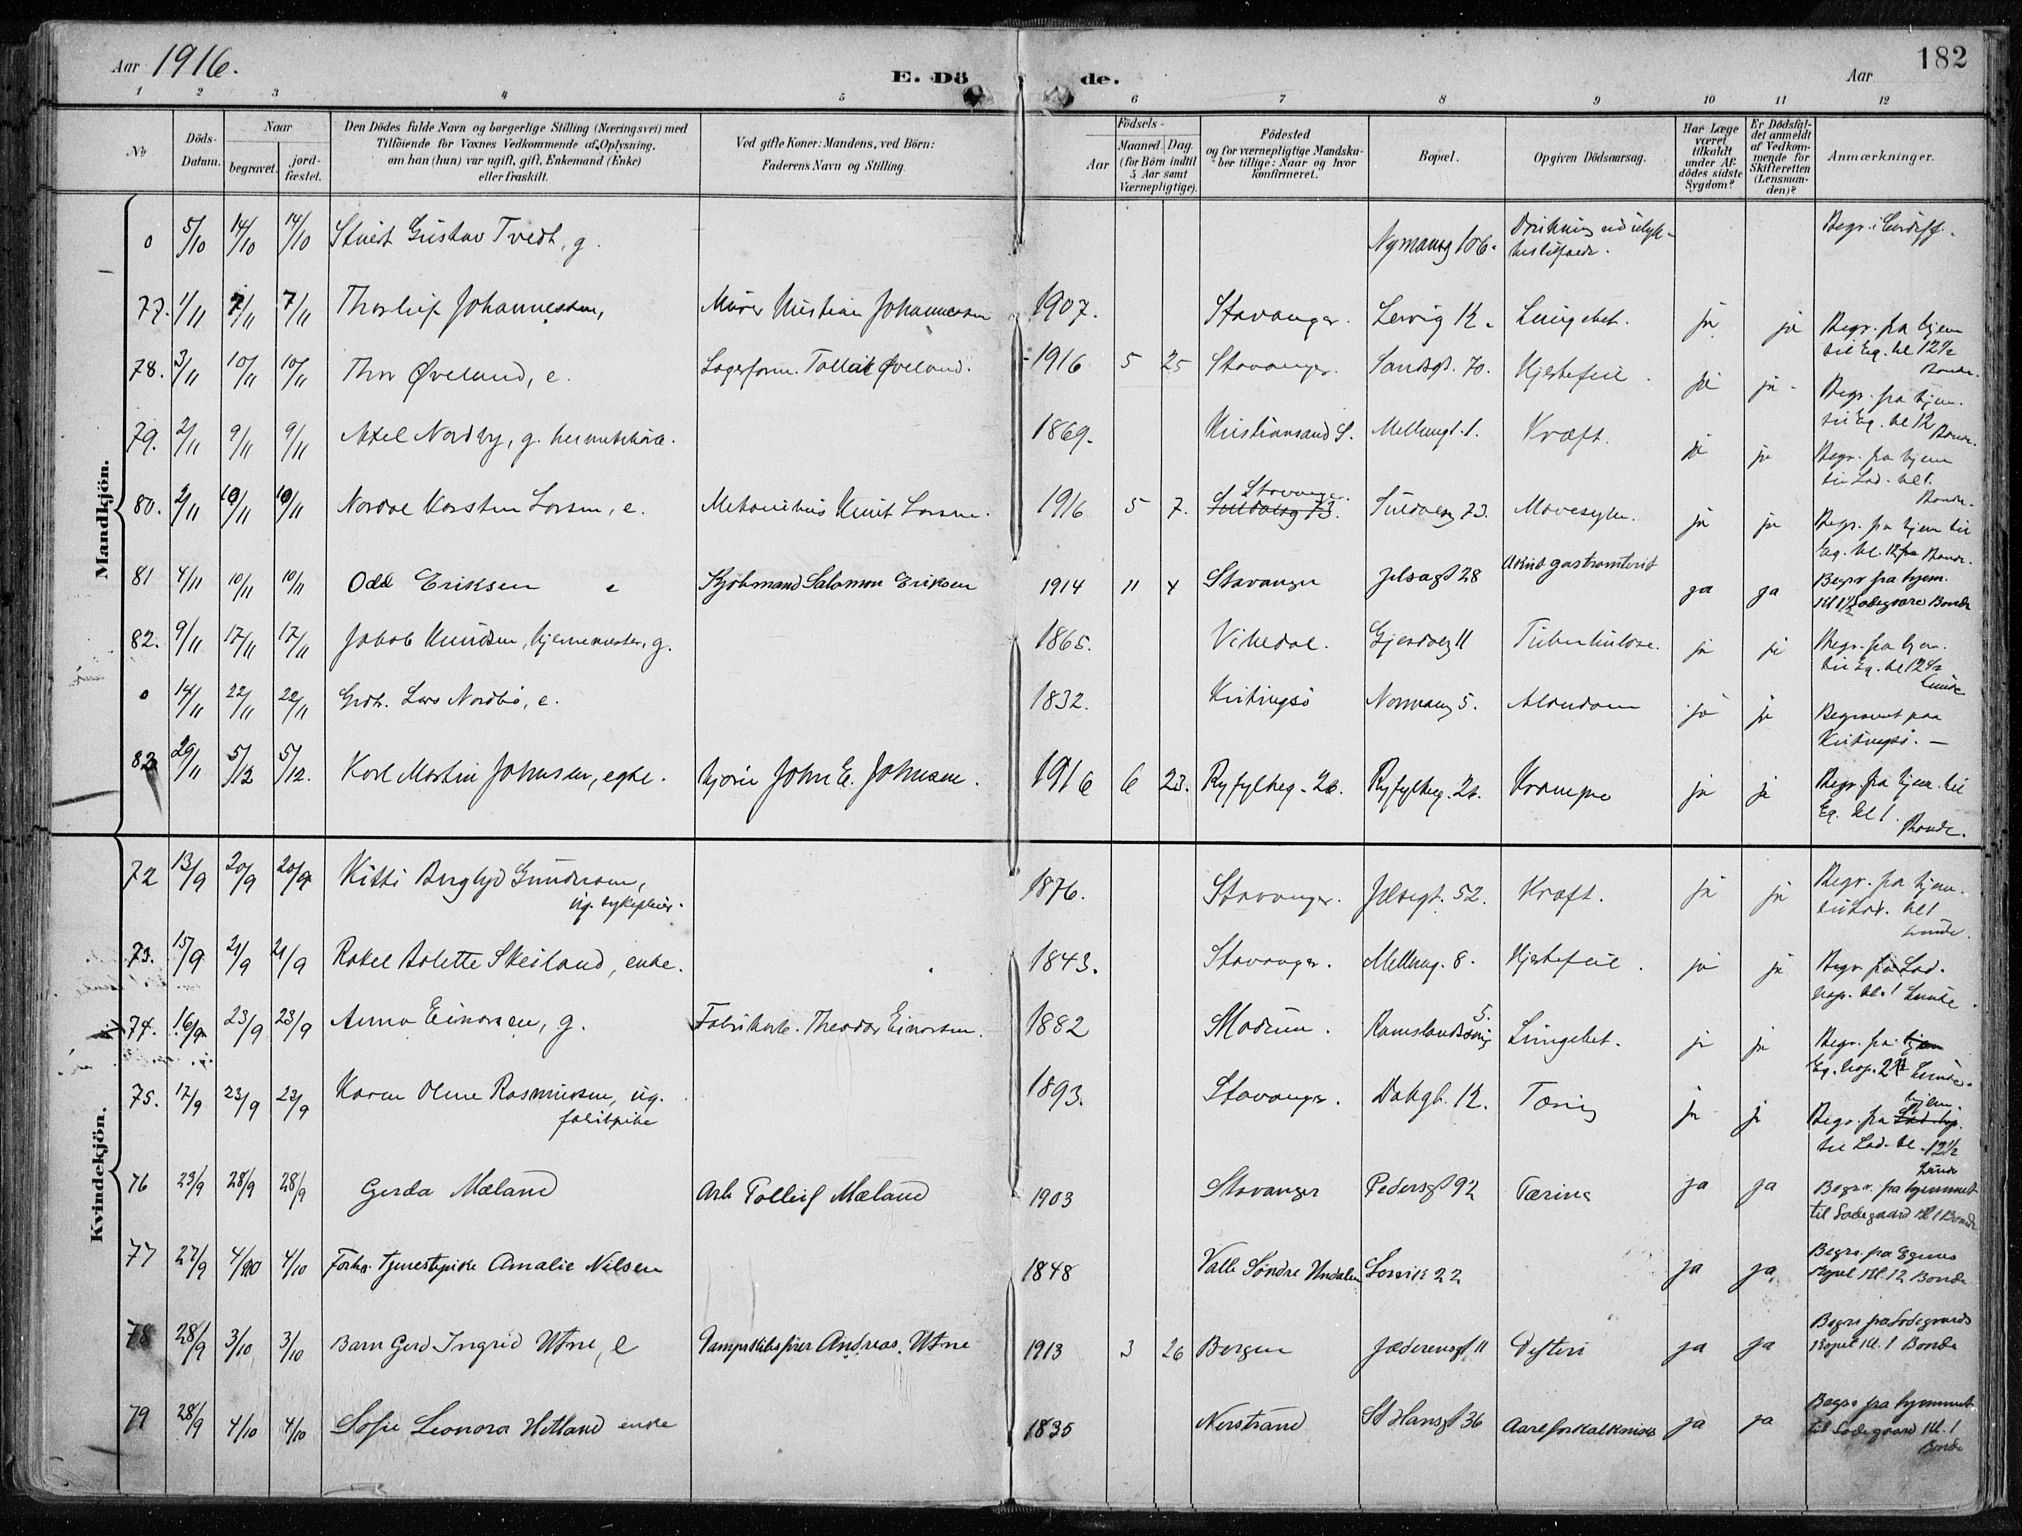 Aar 1916.
E. Dö de.
Aar
182
1 2 3 4 5 6 7 8 9 10 11 12
No
Döds-Datum.
Naar
begravet.
jord-fæstet.
Den Dödes fulde Navn og borgerlige Stilling (Næringsvei) med
Tilföiende for Voxnes Vedkommende af Oplysning,
om han (hun) var ugift, gift, Enkemand (Enke)
eller fraskilt.
Ved gifte Koner: Mandens, ved Börn:
Faderens Navn og Stilling.
Födsels-
Aar
Maaned. Dag.
(for Börn indtil
5 Aar samt
Værnepligtige).
Födested
og for værnepligtige Mandska-
ber tillige: Naar og hvor
konfirmeret.
Bopæl.
Opgiven Dödsaarsag.
Har Læge
været
tilkaldt
under Af-
dödes sidste
Sygdom?
Er Dödsfal-
det anmeldt
af Vedkom-
mende for
Skifteretten
(Lensman-
den)?
Anmærkninger.
Mandkjön.
0 5/10 14/10 14/10 Gustav Tvedt, g. Nymansg 106. Begr. i Cardiff.
77. 1/11 7/11 7/11 Thorleif Johannessen, Murer Kristian Johannessen 1907. Stavanger. Lervig 12. Lungebet. ja ja Begr. fra hjem
til Eg. kl 12½
Bonde.
78. 3/11 10/11 10/11 Thor Øveland, e. Lagerform. Tollak Øveland. 1916 5 25 Stavanger. Sandsgt. 70. Hjertefeil. ja ja Begr. fra hjem.
til Eg. kl 12
Bonde.
79. 2/11 9/11 9/11 Axel Nordby, g. 1869. Kristiansand S. Mellemgt. 1. Kræft. ja ja Begr. fra hjem
til Lad. kl 1.
Bonde.
80. 2/11 10/11 10/11 Nordal Karsten Larsen, e. Mekanikus Knut Larsen. 1916 5 7. Stavanger.
Suldalsg 73. Suldalsg 73. Mavesyke. ja ja Begr. fra hjem til
Eg. kl. 12 Bonde.
81 4/11 10/11 10/11 Odd Eriksen e Kjøbmand Salomon Eriksen 1914 11 4 Stavanger Jelsagt 28 Akut gastroenterit ja ja Begrv fra hjem.
Kl 1½ Ladegaard Bonde
82. 9/11 17/11 17/11 Jakob Knudsen, g. 1865. Vikedal. Gjesdalg 11 Tuberkulose. ja ja Begr. fra hjem.
til Eg. kl 12½
Lunde
0 14/11 22/11 22/11 Lars Nordbø, e. 1832. Kvitingsø Normansg 5. Alderdom ja ja Begravet paa
Kvitingsø. —
83 29/11 5/12 5/12. Karl Martin Johnsen, egte. kjører John E. Johnsen. 1916 6 23. Ryfylkeg. 26. Ryfylkeg. 26. Krampe ja ja Begr. fra hjem. til
Eg. kl 1.
Bonde.
Kvindekjön.
72 13/9 20/9 20/9 Kitti Bergljot Gundersen,
ug. sykepleier. 1876. Stavanger. Jelsagt. 52. Kræft. ja ja Begr. fra hjem.
til Lad. kl 1
Lunde.
73. 15/9 21/9 21/9 Rakel Aolette Skeiland, enke. 1843. Stavanger. Mellemg. 8. Hjertefeil. ja ja Begr. fra Lad.
kap. kl. 1 Lunde.
74. 16/9 23/9 23/9 Anna Einarsen, g. Fabrikarb. Theodor Einarsen. 1882 Modum. Ramslandsvig 5. Lungebet. ja ja Begr. fra hjem
Eg. kap. 2 Lunde.
75. 17/9 23/9 23/9 Karen Oline Rasmussen, ug.
fabrikpike 1893. Stavanger. Dokgt. 12. Tæring ja ja Begr. fra hjem. Lad. kap.
til Lad. kl. 12½
Lunde
76 23/9 28/9 28/9 Gerda Mæland Arb Tolleif Mæland 1903 Stavanger Pedersgt 92 Tæring ja ja Begrv. fra hjemmet
til Ladegaard Kl 1 Bonde
77 27/9 4/10 4/10 Forhv. tjenestepike Amalie Nilsen 1848 Valle Søndre Undalen Lervik 22 ja ja, Begrv. fra Eganes
Kapel Kl. 12 Bonde
78 28/9 3/10 3/10 Barn Gerd Ingrid Utne, e Dampskibsfører Andreas Utne 1913 3 26 Bergen Jæderensgt 11 Difteri ja ja Begrv fra Ladegaards
Kapel Kl. 1 Bonde
79 28/9 4/10 4/10 Sofie Leonora Hetland enke 1835 Nerstrand St Hansgt 36 Aareforkalkning ja ja Begrv fra hjemmet
til Ladegaard Kl. 1
Bonde